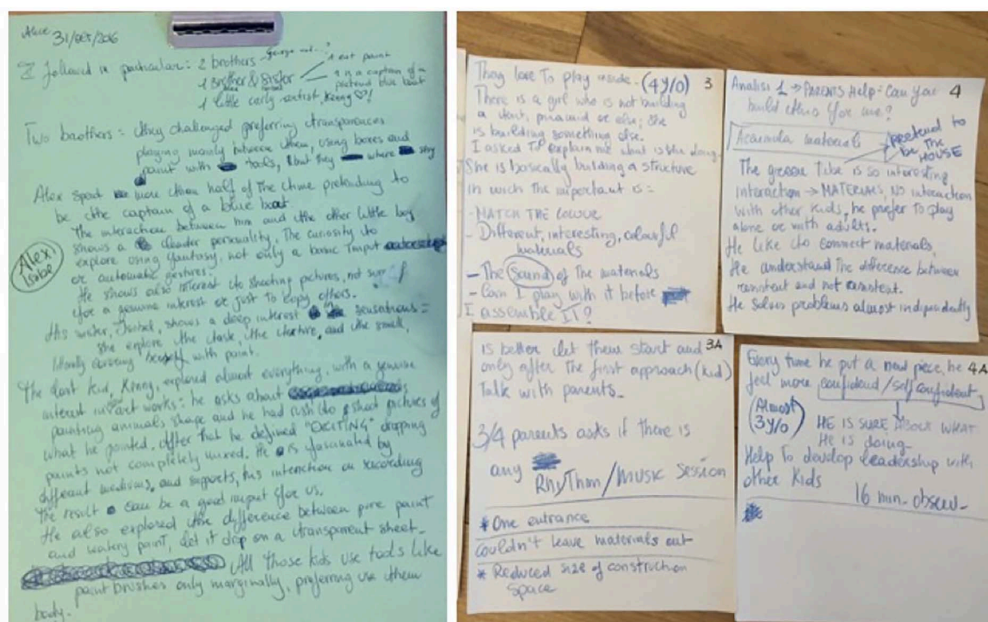 Alice 31/oct/2016
I followed in particular: 2 brothers
1 brother & sister
1 little curly artist, Kenny ♡!
1 eat paint
1 is a captain of a
pretend blue boat
Two brothers = they challenged preferring transparences
playing mainly between them, using boxes and
paint with tools, but they where shy
Alex spent more then half of the time pretending to
be the captain of a blue boat
The interaction between him and the other little boy
shows a leader personality. The curiosity to
explore using fantasy, not only a basic input
or automatic gestures.
He shows also interest to shooting pictures, not sure if
for a genuine interest or just to copy others.
His sister, Isobel, shows a deep interest sensations =
she explore the taste, the texture, and the smell,
literally covering herself with paint.
Alex/
Isobel
The last kid, Kenny, explored almost everything, with a genuine
interest in art works: he asks about
painting animals shape and he had rush to shoot pictures of
what he painted, after that he defined "EXCITING" dropping
paints not completely mixed. He is fascinated by
different mediums, and supports, his interaction on recording
the result can be a good input for us.
He also explored the difference between pure paint
and watery paint, let it drop on a transparent sheet.
All those kids use tools like
paint brushes only marginally, preferring use them
body.
They love to play inside. (4 y/o) 3
There is a girl who is not building
a tent, piramid or else; she
is building something else.
I asked to explain me what is she doing.
She is basically building a structure
in wich the important is =
- MATCH THE COLOUR
- Different, interesting, colourful
materials
- The Sound of the materials
- Can I play with it before
I assemble IT?
Analisi 1 → PARENTS HELP = Can you 4
build this for me?
Accumula materials
PRETEND TO
BE THE HOUSE
The green Tube is so interesting
interaction → MATERIALS, NO interaction
with other kids, he prefer to play
alone or with adults.
He like to connect materials.
He understand the difference between
resistent and not resistent.
He solves problems almost independently
is better let them start and 3A
only after the first approach (kid)
Talk with parents_
3/4 parents asks if there is
any
RhyThm/MUSIC SESSION
* One entrance
Couldn't leave materials out
* Reduced size of construction
space
Every time he put a new piece, he 4A
feel more confident/self confident,
(Almost
3 y/o)
HE IS SURE ABOUT WHAT
He is doing_
Help to develop leadership with
other kids
16 min. observ_